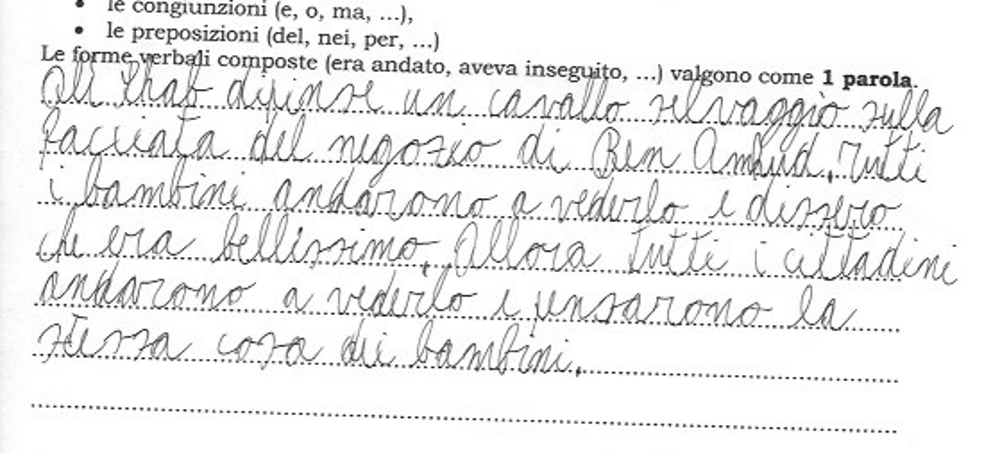 • le congiunzioni (e, o, ma, ...),
• le preposizioni (del, nei, per, ...)
Le forme verbali composte (era andato, aveva inseguito, ...) valgono come 1 parola.
Alì Shab dipinse un cavallo selvaggio sulla
facciata del negozio di Ben Amhud. Tutti
i bambini andarono a vederlo e dissero
che era bellissimo. Allora tutti i cittadini
andarono a vederlo e pensarono la
stessa cosa dei bambini.